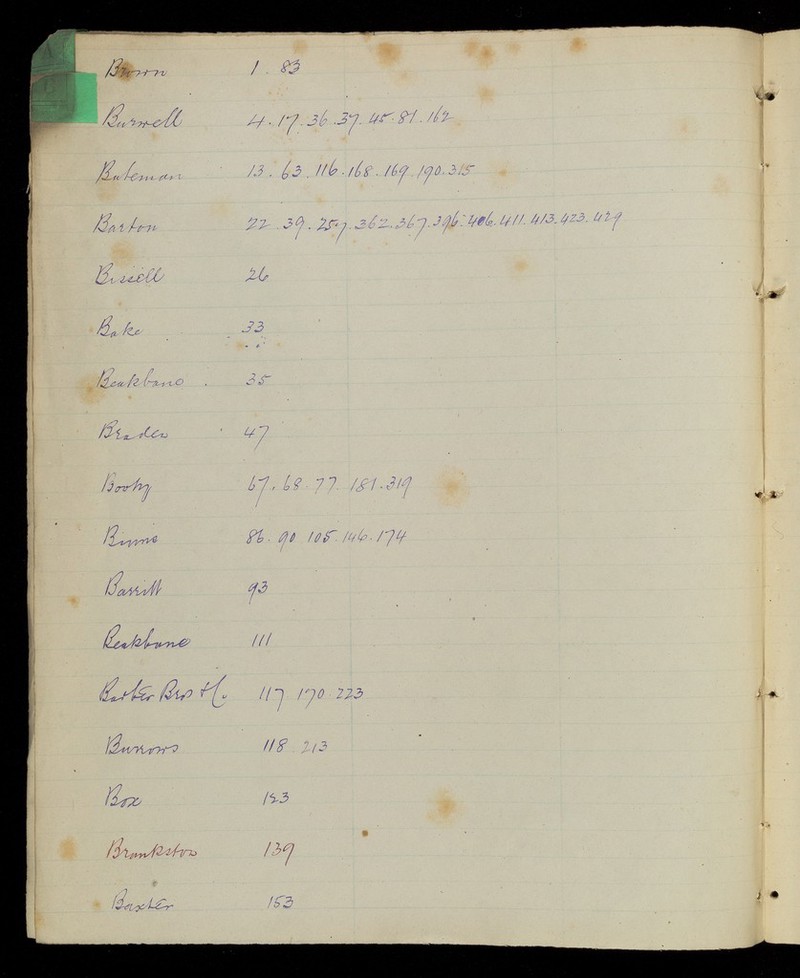 Brown 1. 83
Burwell 4. 17. 36. 37. 45. 81. 162
Bateman 13. 63. 116. 168. 169. 190. 315
Barton 22. 39. 257. 362. 367. 396. 406. 411. 413. 423. 429
Bissell 26
Bake 33
Beakbane 35
Braden 47
Booty 67. 68. 77. 181. 319
Binns 86. 90 105. 146. 174
Barritt 93
Beakbane 111
Barber Bros & Co. 117 170 223
Burrows 118 213
Box 123
Brankston 139
Baxter 153